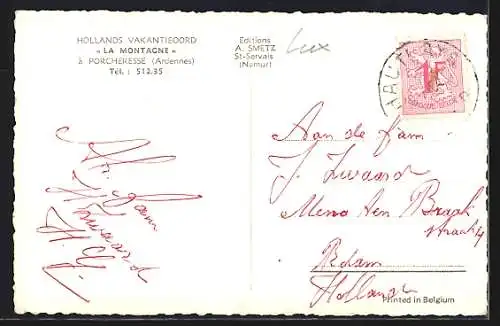 HOLLANDS VAKANTIEOORD
« LA MONTAGNE »
à PORCHERESSE (Ardennes)
Tél. : 512.35
Editions
A. SMETZ
St-Servais
(Namur)
Lux
1F
Aan de fam.
J. Zwaard
Menno ten Braak
straat 4
R'dam
Holland
fam
Zwaard
Printed in Belgium